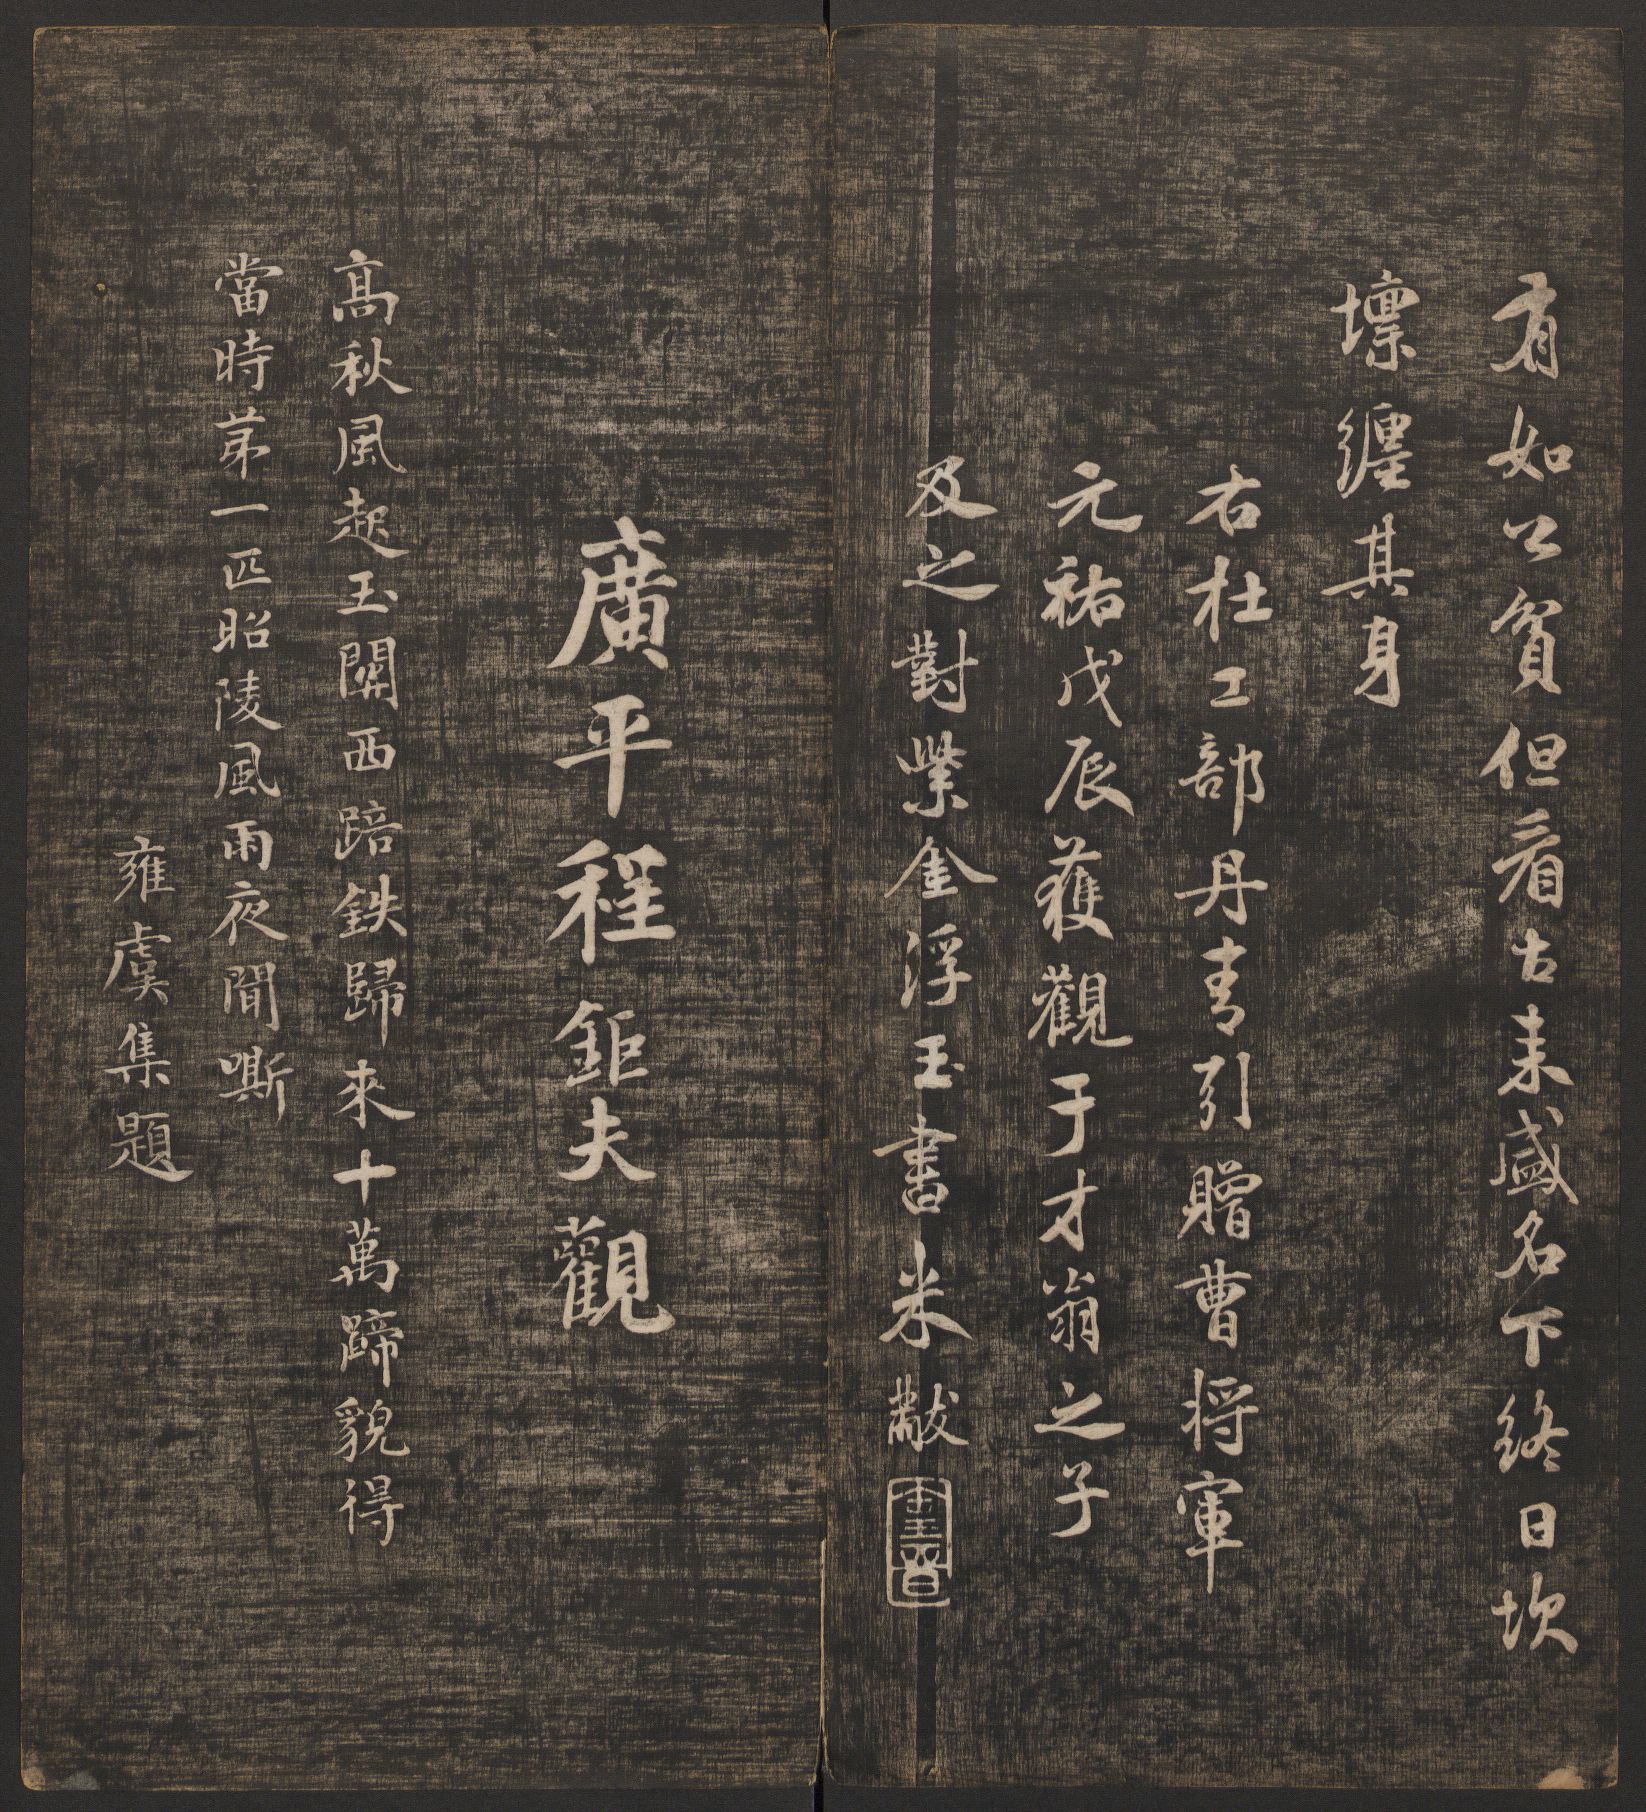 有如公貧但看古來盛名下終日坎
壈纏其身
右杜工部丹青引贈曹將軍
元祐戊辰獲觀于才翁之子
及之對紫金浮玉書米黻
廣平程鉅夫觀
高秋風起玉關西踣鉄歸來十萬蹄貌得
當時第一匹昭陵風雨夜聞嘶
雍虞集題